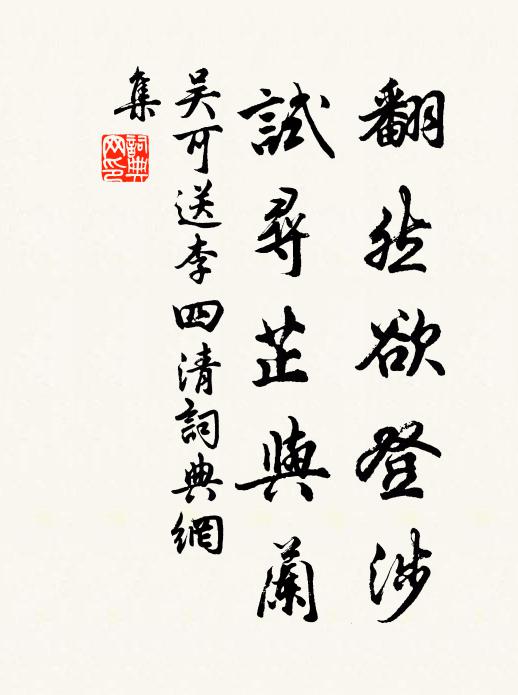 翻然欲登涉
試尋芷與蘭
吴可送李四清詞典網
集
詞典网印